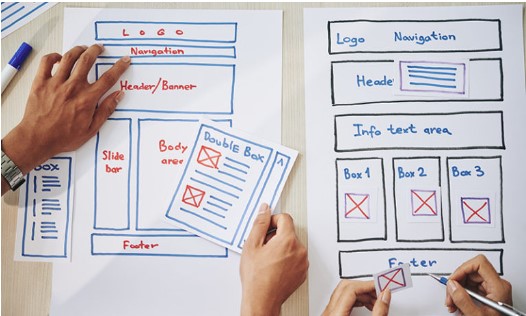 LOGO
Navigation
Header/Banner
Slide
bar
Body
area
Footer
BOX
DOUBLE BOX
Logo Navigation
Heade
Info text area
Box 1
Box 2
Box 3
Footer